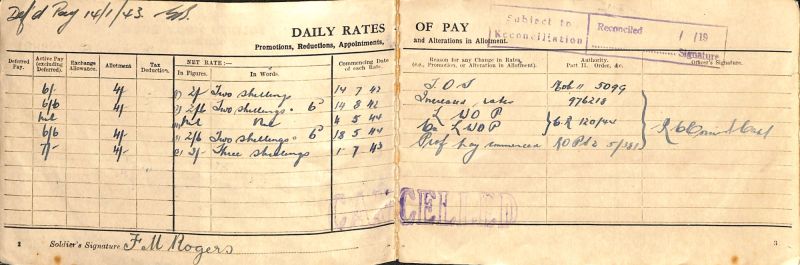 Def'd Pay 14/1/43.
DAILY RATES OF PAY
Promotions, Reductions, Appointments, and Alterations in Allotment.
Subject to Reconciliation
Reconciled / /19
Signature
Deferred Pay. Active Pay (excluding Deferred). Exchange Allowance. Allotment Tax Deduction. NET RATE:— In Figures. In Words. Commencing Date of each Rate. Reason for any Change in Rates, (i.e., Promotion, or Alteration in Allotment). Authority. Part II. Order, &c. Officer's Signature.
6/- 4/- 2/- Two shillings 14 7 42 T O S Mob 11 5099
6/6 4/- 2/6 Two shillings 6d 14 8 42 Increased rates 976218
Nil 4/- Nil Nil 4 5 44 L W O P
6/6 4/- 2/6 Two shillings 6d 18 5 44 L W O P C.R 120/44
7/- 4/- 3/- Three Shillings 1 7 43 Prof Pay commenced
CANCELLED
2 Soldier's Signature F M Rogers 3